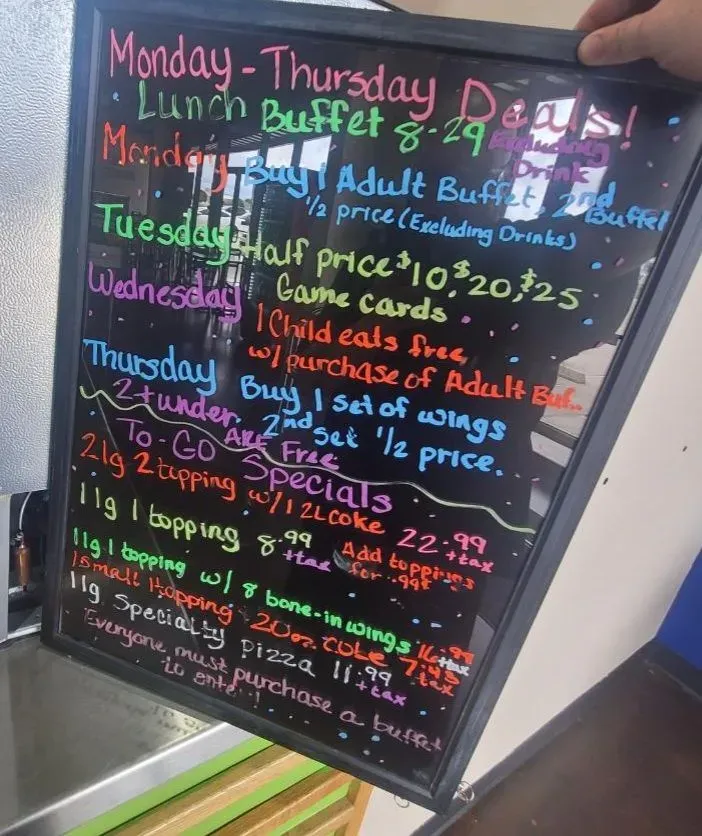 Monday - Thursday Deals!
Lunch Buffet 8.29 Excluding
Drink
Monday Buy 1 Adult Buffet, 2nd Buffet
1/2 price (Excluding Drinks)
Tuesday Half price $10, $20, $25
Game cards
Wednesday 1 Child eats free
w/ purchase of Adult Buf..
Thursday Buy 1 set of wings
2nd set 1/2 price.
2 + under
ARE Free
To-Go Specials
2 lg 2 topping w/ 1 2L coke 22.99
+ tax
1 lg 1 topping 8.99
+ tax
Add toppings
for .99¢
1 lg 1 topping w/ 8 bone-in wings 16.99
+ tax
1 small 1 topping 20oz. coke 7.45
+ tax
1 lg Specialty pizza 11.99
+ tax
Everyone must purchase a buffet
to enter!